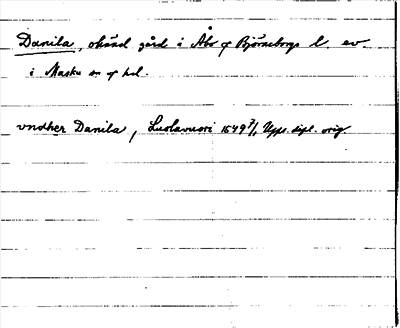 Danila, okänd gård i Åbo o Björneborgs l. ev.
i Masku sn o hd.
vndher Danila, Luolavuori 1549 7/1 Upps. dipl. orig